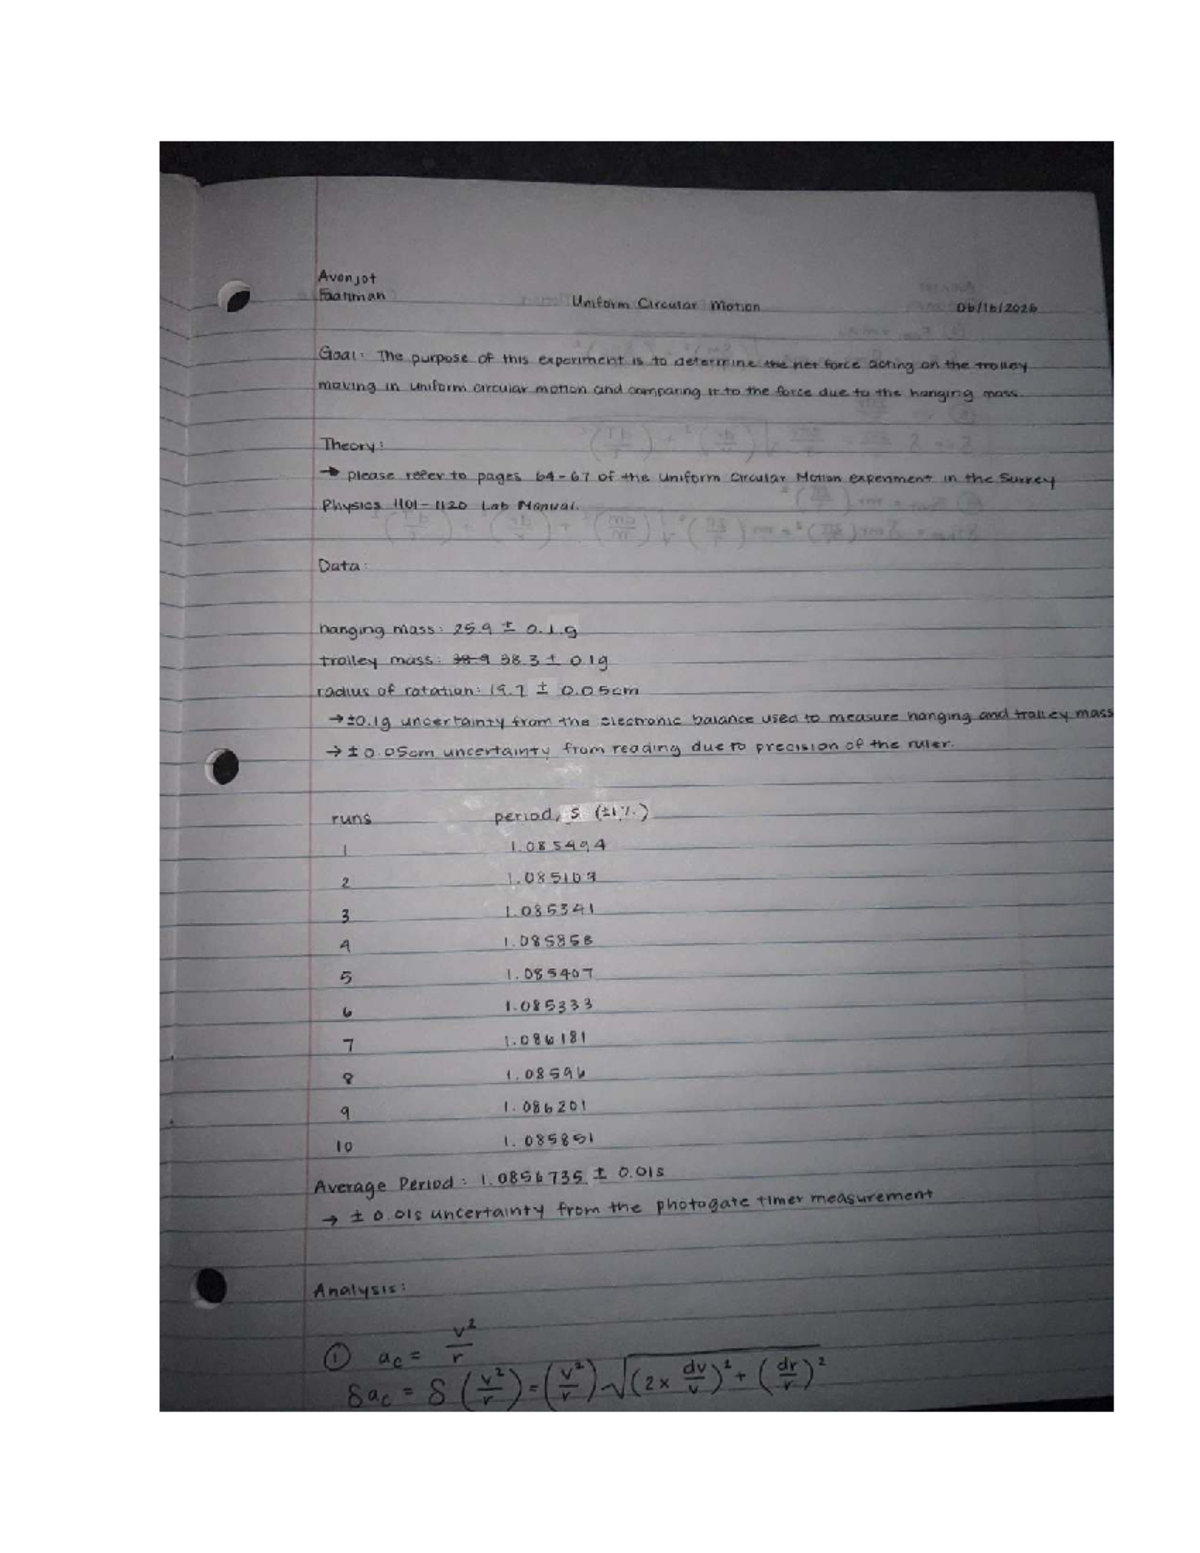 Avonjot
Faariman
Uniform Circular Motion
06/16/2026
Goal: The purpose of this experiment is to determine the net force acting on the trolley
moving in uniform circular motion and comparing it to the force due to the hanging mass.
Theory:
→ please refer to pages 64-67 of the Uniform Circular Motion experiment in the Surrey
Physics 1101-1120 Lab Manual.
Data:
hanging mass: 25.9 ± 0.1 g
trolley mass: 38.3 ± 0.1g
radius of rotation: 19.7 ± 0.05cm
→ ±0.1g uncertainty from the electronic balance used to measure hanging and trolley mass
→ ± 0.05cm uncertainty from reading due to precision of the ruler.
runs period, s (±1%)
1 1.085494
2
3 1.085341
4 1.085858
5 1.085407
6 1.085333
7 1.086181
8 1.08596
9 1.086201
10 1.085851
Average Period: 1.0856735 ± 0.01s
→ ± 0.01s uncertainty from the photogate timer measurement
Analysis:
① ac = v²/r
δac = δ (v²/r) = (v²/r) √(2 x dv/v)² + (dr/r)²